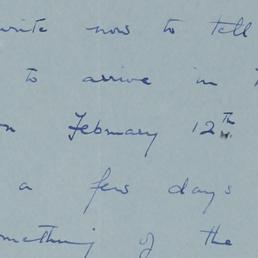 write now to tell
to arrive in
on February 12th
a few days
something of the